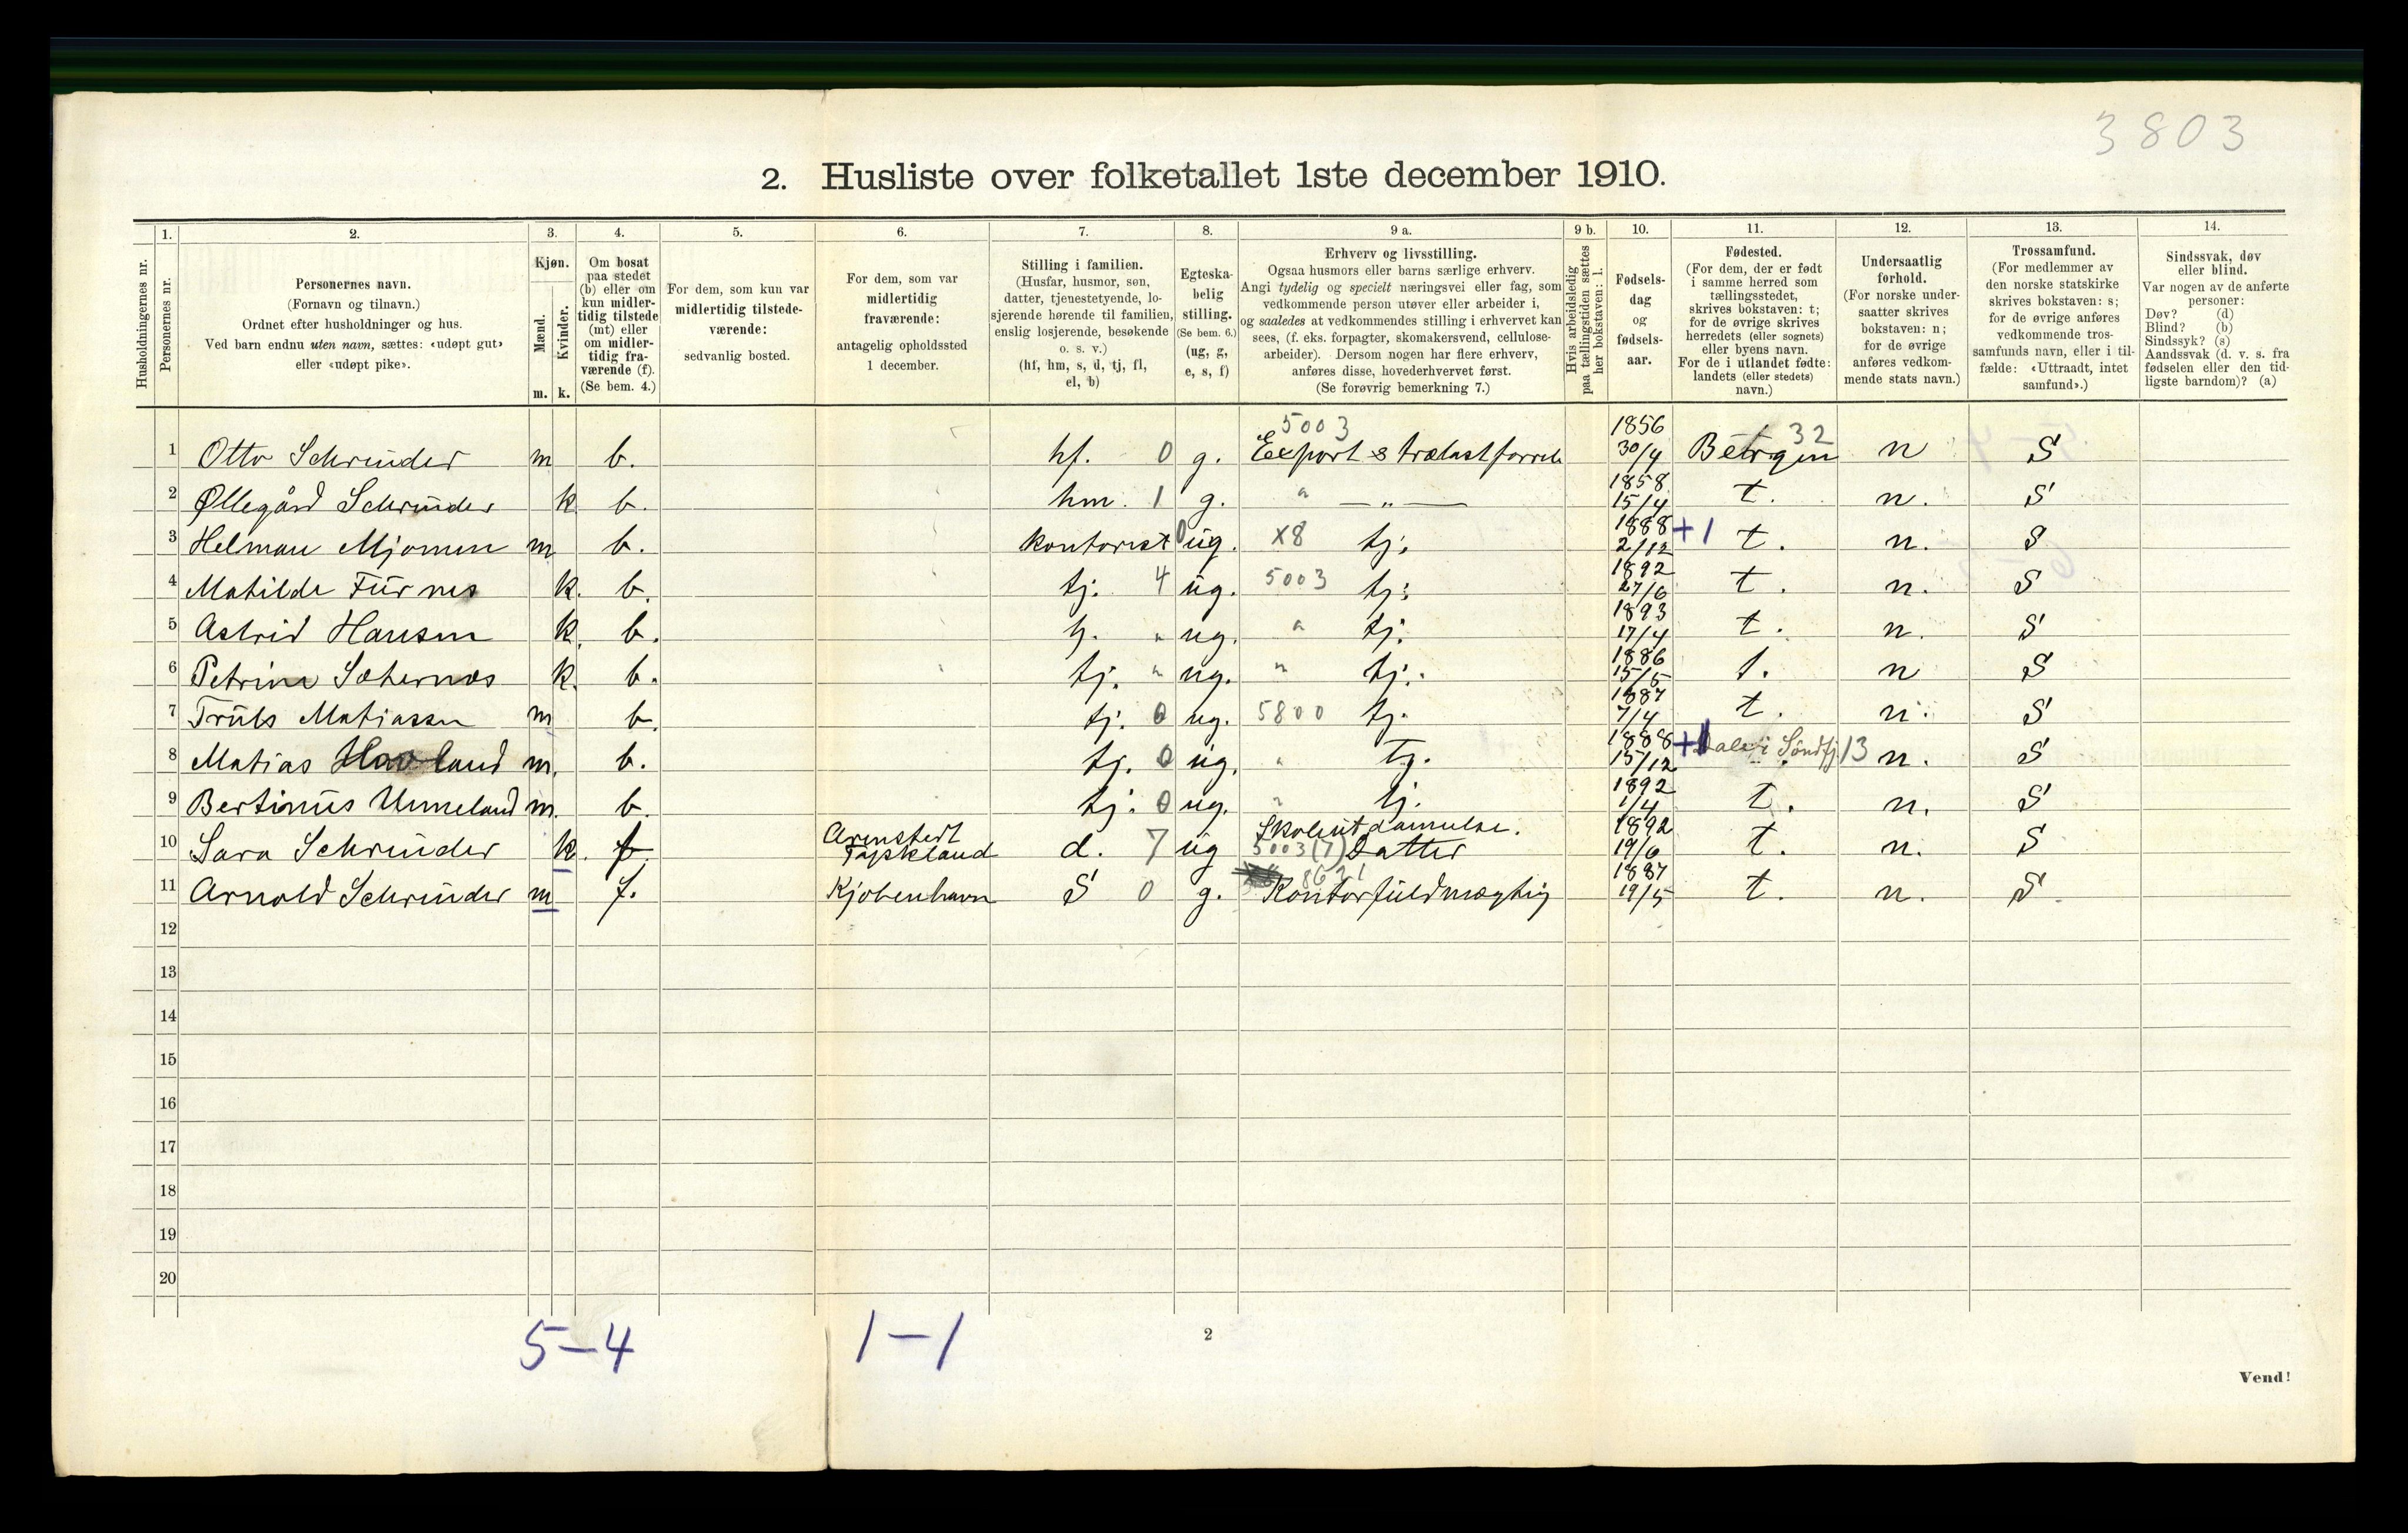 3803
2. Husliste over folketallet 1ste december 1910.
Husholdningernes nr.
1. Personernes nr.
2. Personernes navn.
(Fornavn og tilnavn.)
Ordnet efter husholdninger og hus.
Ved barn endnu uten navn, sættes: «udøpt gut»
eller «udøpt pike».
3. Kjøn.
Mænd. Kvinder.
m. k.
4. Om bosat
paa stedet
(b) eller om
kun midler-
tidig tilstede
(mt) eller
om midler-
tidig fra-
værende (f).
(Se bem. 4.)
5. For dem, som kun var
midlertidig tilstede-
værende:
sedvanlig bosted.
6. For dem, som var
midlertidig
fraværende:
antagelig opholdssted
1 december.
7. Stilling i familien.
(Husfar, husmor, søn,
datter, tjenestetyende, lo-
sjerende hørende til familien,
enslig losjerende, besøkende
o. s. v.)
(hf, hm, s, d, tj, fl,
el, b)
8. Egteska-
belig
stilling.
(Se bem. 6.)
(ug, g,
e, s, f)
9 a. Erhverv og livsstilling.
Ogsaa husmors eller barns særlige erhverv.
Angi tydelig og specielt næringsvei eller fag, som
vedkommende person utøver eller arbeider i,
og saaledes at vedkommendes stilling i erhvervet kan
sees, (f. eks. forpagter, skomakersvend, cellulose-
arbeider). Dersom nogen har flere erhverv,
anføres disse, hovederhvervet først.
(Se forøvrig bemerkning 7.)
9 b. Hvis arbeidsledig
paa tællingstiden sættes
her bokstaven: l.
10. Fødsels-
dag
og
fødsels-
aar.
11. Fødested.
(For dem, der er født
i samme herred som
tællingsstedet,
skrives bokstaven: t;
for de øvrige skrives
herredets (eller sognets)
eller byens navn.
For de i utlandet fødte:
landets (eller stedets)
navn.)
12. Undersaatlig
forhold.
(For norske under-
saatter skrives
bokstaven: n;
for de øvrige
anføres vedkom-
mende stats navn.)
13. Trossamfund.
(For medlemmer av
den norske statskirke
skrives bokstaven: s;
for de øvrige anføres
vedkommende tros-
samfunds navn, eller i til-
fælde: «Uttraadt, intet
samfund».)
14. Sindssvak, døv
eller blind.
Var nogen av de anførte
personer:
Døv? (d)
Blind? (b)
Sindssyk? (s)
Aandssvak (d. v. s. fra
fødselen eller den tid-
ligste barndom)? (a)
1 Otto Schrüder m b. hf. 0 g. 5003 Export & trælastforretn 1856 30/4 Bergen 32 n S
2 Øllegård Schrüder k b. hm. 1 g. " —"— 1858 15/4 t. n. S
3 Helman Mjømen m b. kontorist 0 ug. x8 tj. 1888 2/12 +1 t. n. S
4 Matilde Fürnes k. b. tj. 4 ug. 5003 tj: 1892 27/6 t. n. S
5 Astrid Hansen k. b. tj. " ug. " tj. 1893 17/4 t. n. S
6 Petrine Sæternæs k. b. tj. " ug. " tj. 1886 15/5 t. n S
7 Trüls Matiassen m b. tj. 0 ug. 5800 tj. 1887 7/4 t. n. S
8 Matias Havland m. b. tj. 0 ug. " Tj. 1888 15/12 +1 Dale i Söndfj. 13 n. S
9 Bertinüs Unneland m. b. tj. 0 ug. " tj. 1892 1/4 t. n. S
10 Sara Schrüder k. f. Arnstedt Tyskland d. 7 ug Skoleutdannelse. 5003 (7) Datter 1892 19/6 t. n. S
11 Arnold Schrüder m f. Kjøbenhavn S 0 g. 8621 Kontorfüldmægtig 1887 19/5 t. n. S.
12
13
14
15
16
17
18
19
20
5–4 1–1
2
Vend!